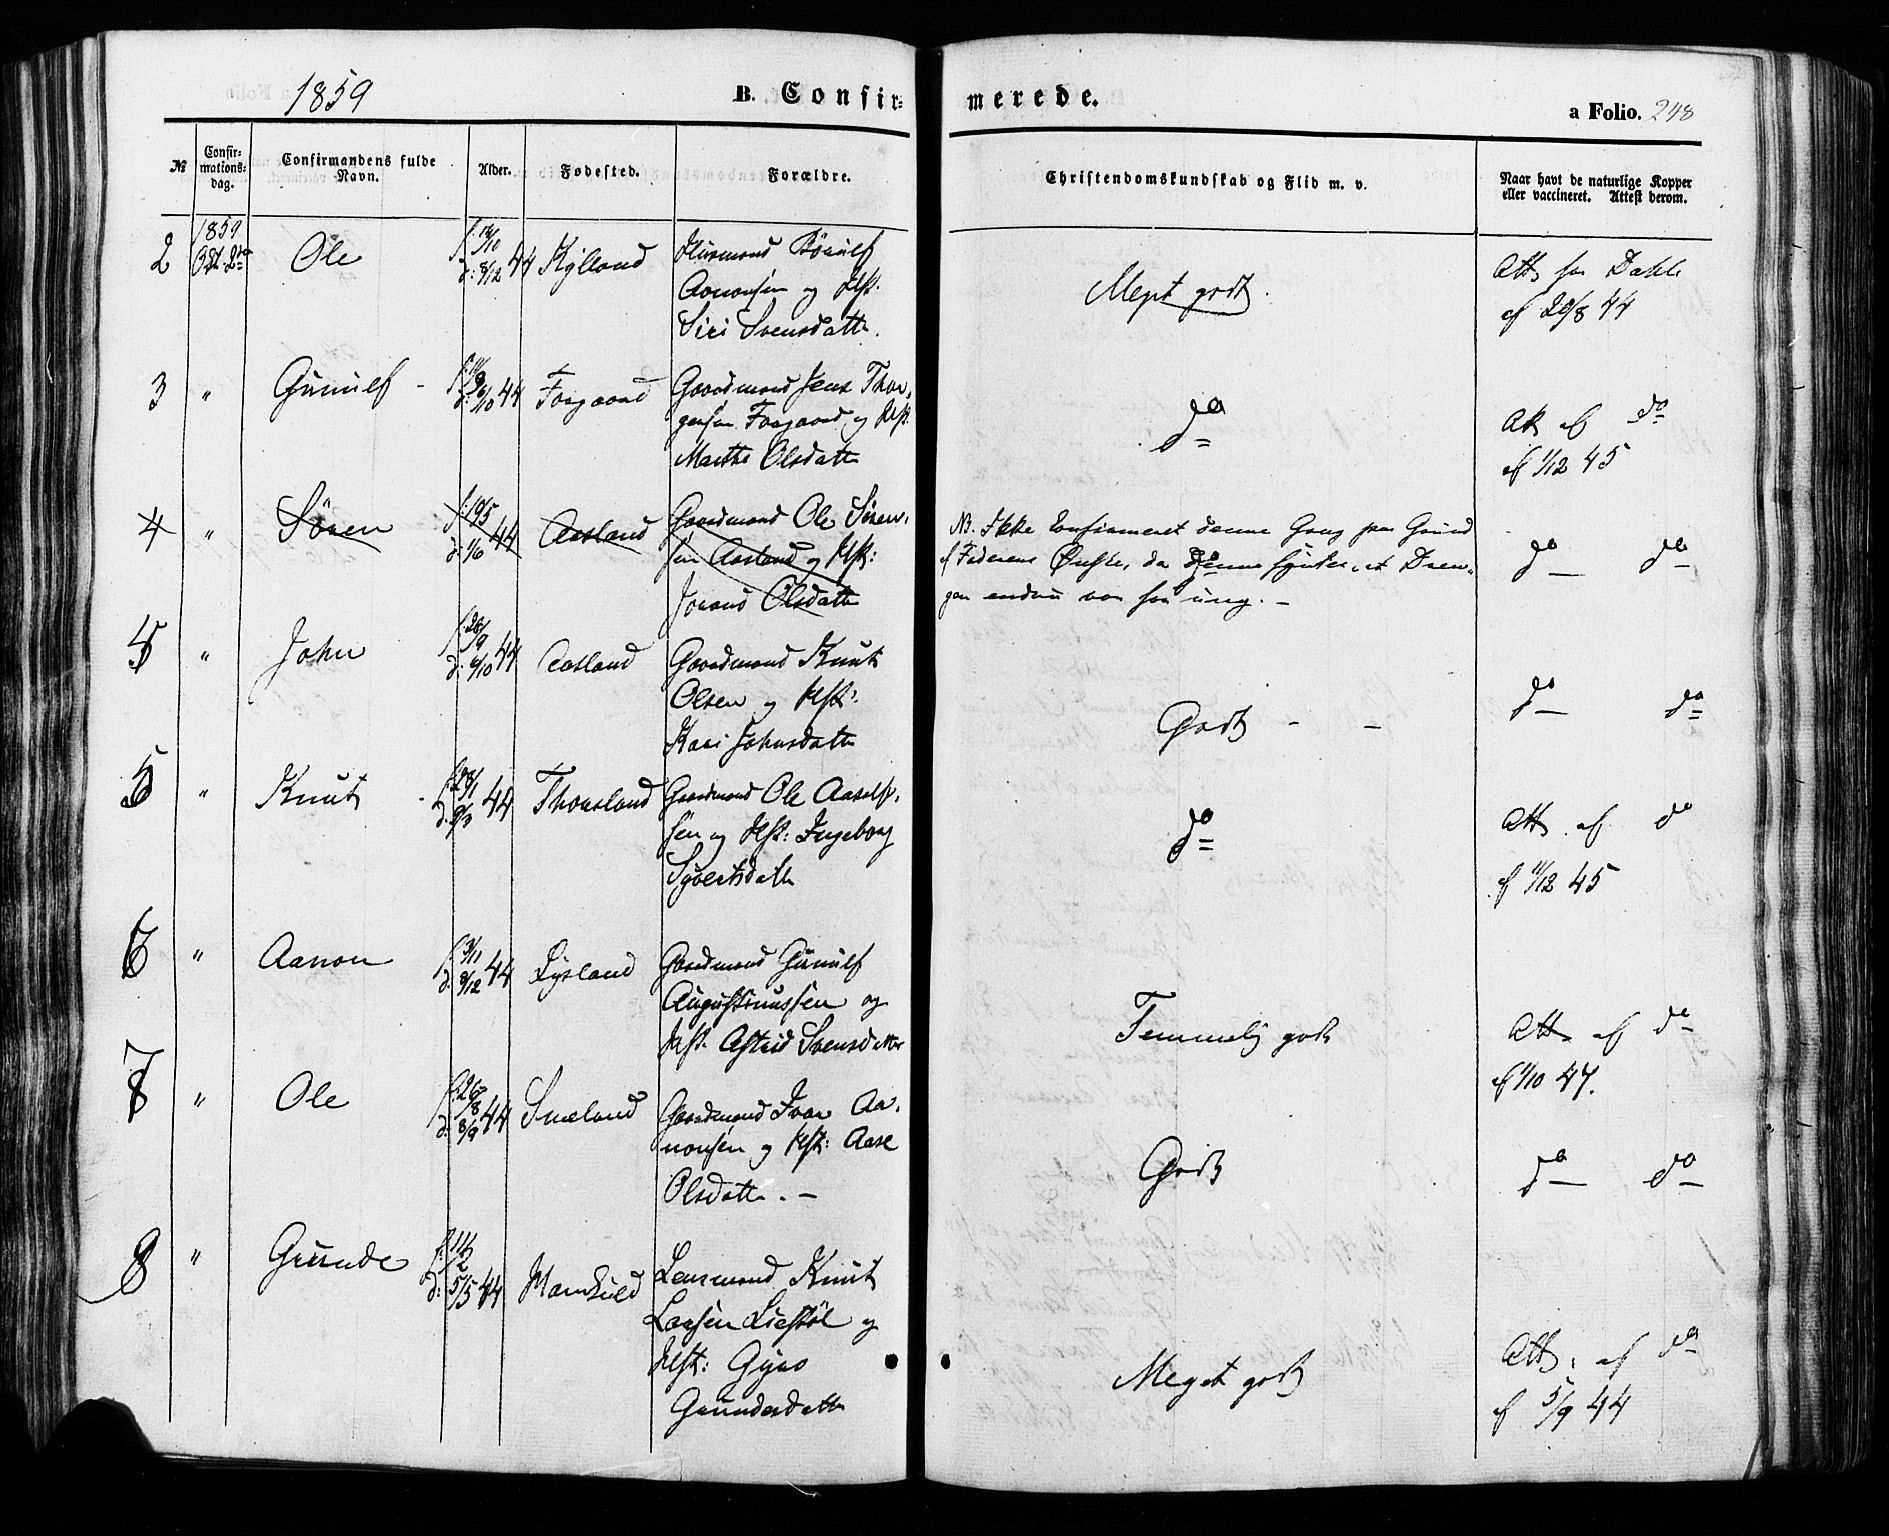 1859
B. Confir-
merede.
a Folio. 248
№
Confir-
mations-
dag.
Confirmandens fulde
Navn.
Alder.
Fødested.
Forældre.
Christendomskundskab og Flid m. v.
Naar havt de naturlige Kopper
eller vaccineret. Attest derom.
2
1859
Oct. 2den
Ole
d: 8/12 44
Kylland
Huusmand
Aanonsen og Hst:
Siri Svensdatter.
Meget godt.
Att: fra Dahle
af 26/8 44
3 " Gunulf
44
Fosgaard
Gaardmand Jens Thor-
gersen Fosgaard og Hst:
Marthe Olsdatter
do
Att: af do
af 1/12 45
4 " Sören
44
Aasland
Gaardmand Ole Sören-
sen Aasland og Hst:
Olsdatter
NB. Ikke Confirmeret denne Gang paa Grund
af Faderens Ønske, da denne syntes, at Dren-
gen endnu var for ung. —
do do
5 " John
f: 28/9
d: 6/10 44
Aasland
Gaardmand Knut
Olsen og Hst:
Kari Johnsdatter
Godt - -
do do
5 " Knut
44
Thorsland
Gaardmand Ole Aaself-
sen og Hst: Ingeborg
Syvertsdatter
do
Att: af do
af 11/12 45
6 " Aanon
f: 3/11
d: 8/12 44
Lysland
Gaardmand Gunulf
Augustinussen og
Hst: Astrid Svensdatter
Temmelig godt
Att: af do
af 1/10 47.
7 " Ole
f: 26/8
d: 8/9 44
Smeland
Gaardmand Ivar Aa-
nonsen og Hst: Aase
Olsdatter. —
Godt
do do
8 " Gunde
d: 5/5 44
Lensmand Knut
Larsen Liestöl og
Hst: Gyro
Gundersdatter
Meget godt
Att: af do
af 5/9 44